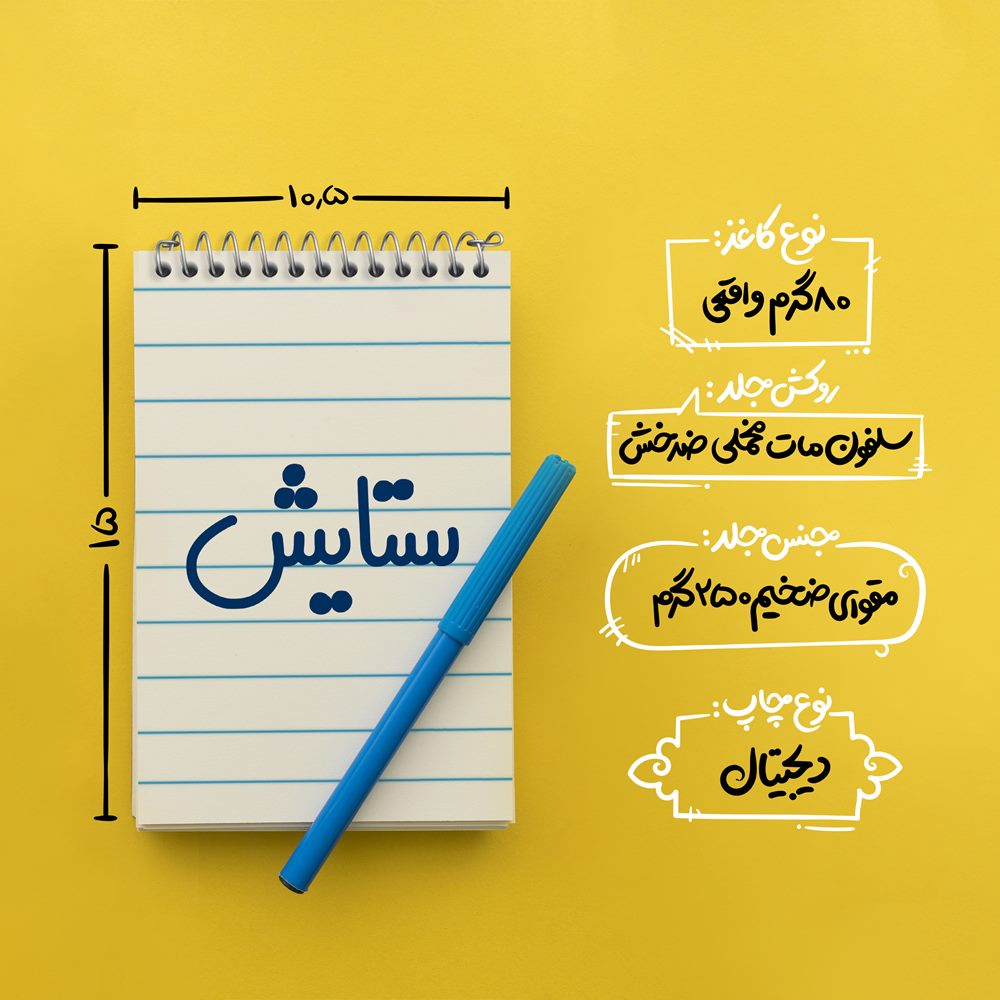 ۱۰٫۵
۱۵
ستایش
نوع کاغذ:
۸۰گرم واقعی
روکش جلد:
سلفون مات مخملی ضدخش
جنس جلد:
مقوای ضخیم ۲۵۰گرم
نوع چاپ:
دیجیتال